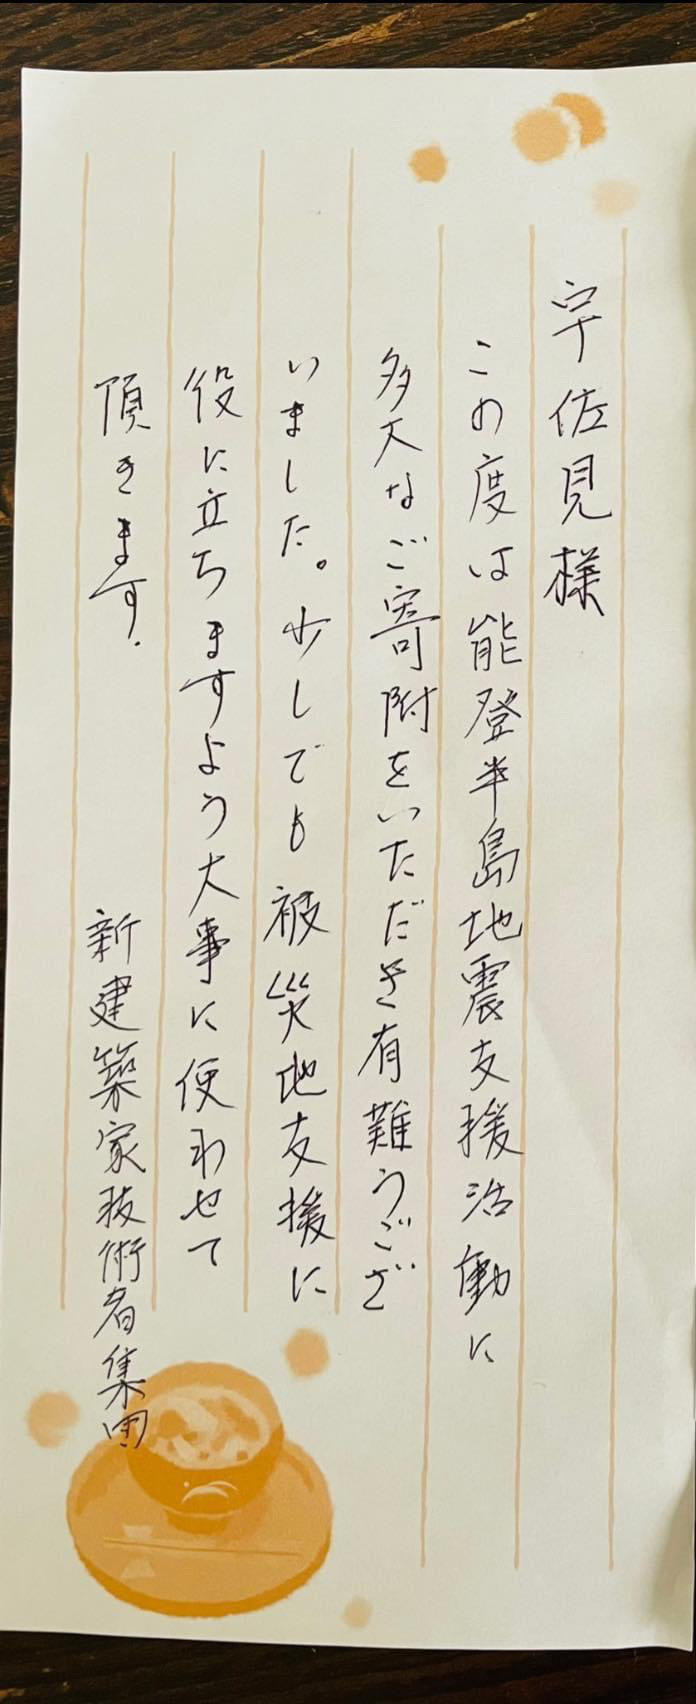 宇佐見様
この度は能登半島地震支援活動に
多大なご寄附をいただき有難うござ
いました。少しでも被災地支援に
役に立ちますよう大事に使わせて
頂きます.
新建築家技術者集団